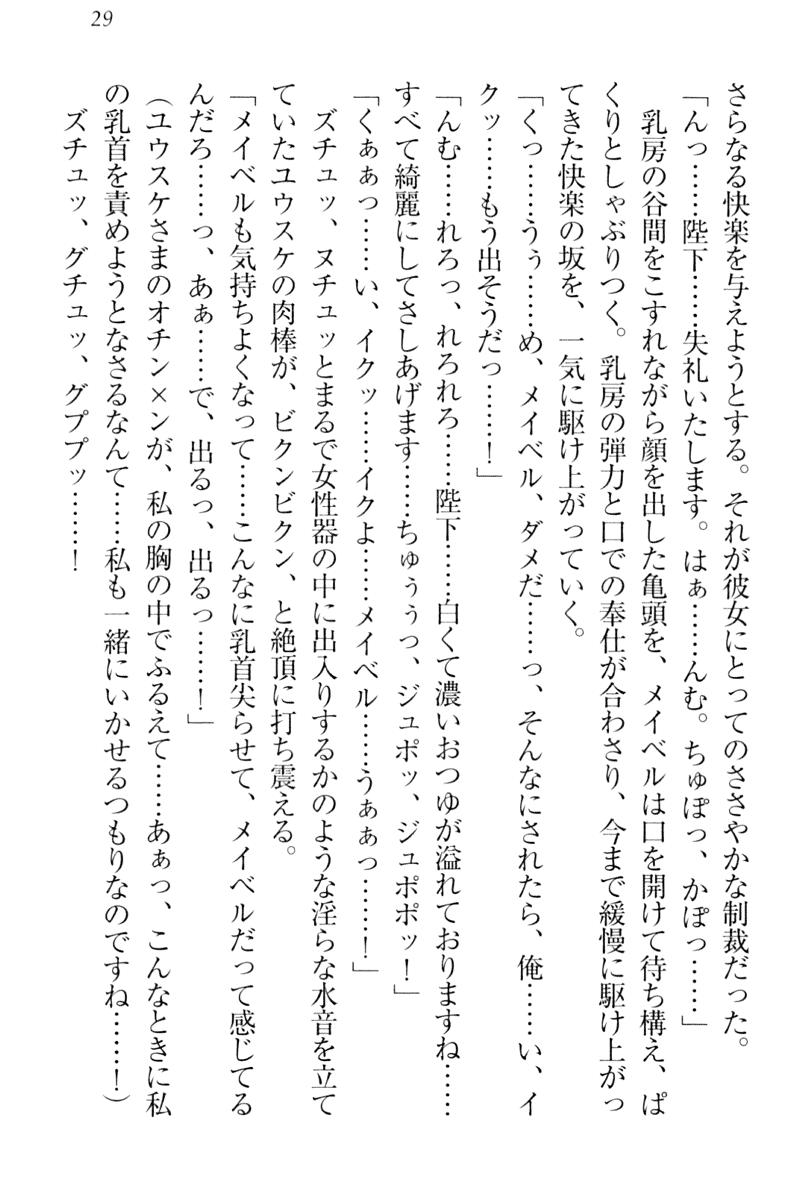 29
さらなる快楽を与えようとする。それが彼女にとってのささやかな制裁だった。
「んっ……陛下……失礼いたします。はぁ……んむ。ちゅぽっ、かぽっ……」
乳房の谷間をこすれながら顔を出した亀頭を、メイベルは口を開けて待ち構え、ぱ
くりとしゃぶりつく。乳房の弾力と口での奉仕が合わさり、今まで緩慢に駆け上がっ
てきた快楽の坂を、一気に駆け上がっていく。
「くっ……うぅ……め、メイベル、ダメだ……っ、そんなにされたら、俺……い、イ
クッ……もう出そうだっ……！」
「んむ……れろっ、れろれろ……陛下……白くて濃いおつゆが溢れておりますね……
すべて綺麗にしてさしあげます……ちゅぅぅっ、ジュポッ、ジュポポッ！」
「くぁぁっ……い、イクッ……イクよ……メイベル……うぁぁっ……！」
ズチュッ、ヌチュッとまるで女性器の中に出入りするかのような淫らな水音を立て
ていたユウスケの肉棒が、ビクンビクン、と絶頂に打ち震える。
「メイベルも気持ちよくなって……こんなに乳首尖らせて、メイベルだって感じてる
んだろ……っ、あぁ……で、出るっ、出るっ……！」
（ユウスケさまのオチン×ンが、私の胸の中でふるえて……あぁっ、こんなときに私
の乳首を責めようとなさるなんて……私も一緒にいかせるつもりなのですね……！）
ズチュッ、グチュッ、グププッ……！